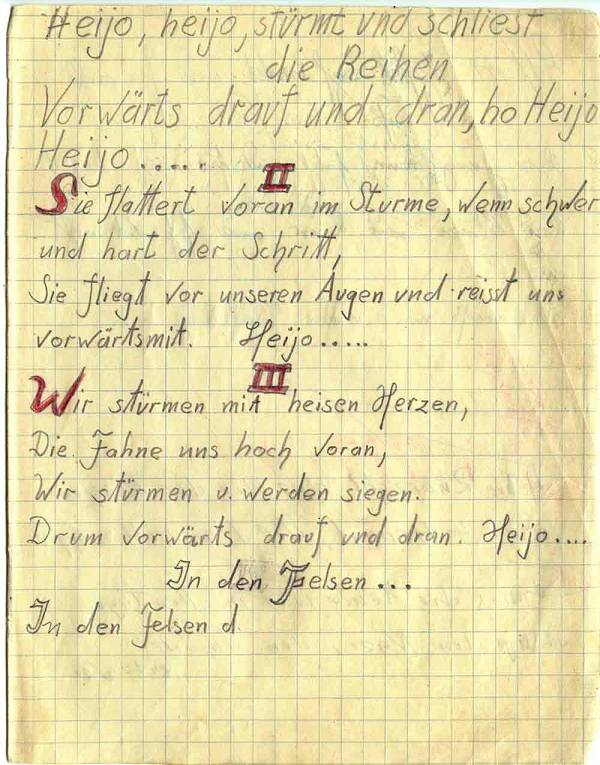 Heijo, heijo, stürmt und schliest
die Reihen
Vorwärts drauf und dran, ho Heijo
Heijo.....
II
Sie flattert voran im Sturme, wenn schwer
und hart der Schritt,
Sie fliegt vor unseren Augen und reisst uns
vorwärtsmit. Heijo.....
III
Wir stürmen mit heisen Herzen,
Die Fahne uns hoch voran,
Wir stürmen u. werden siegen.
Drum vorwärts drauf und dran. Heijo....
In den Felsen...
In den Felsen d